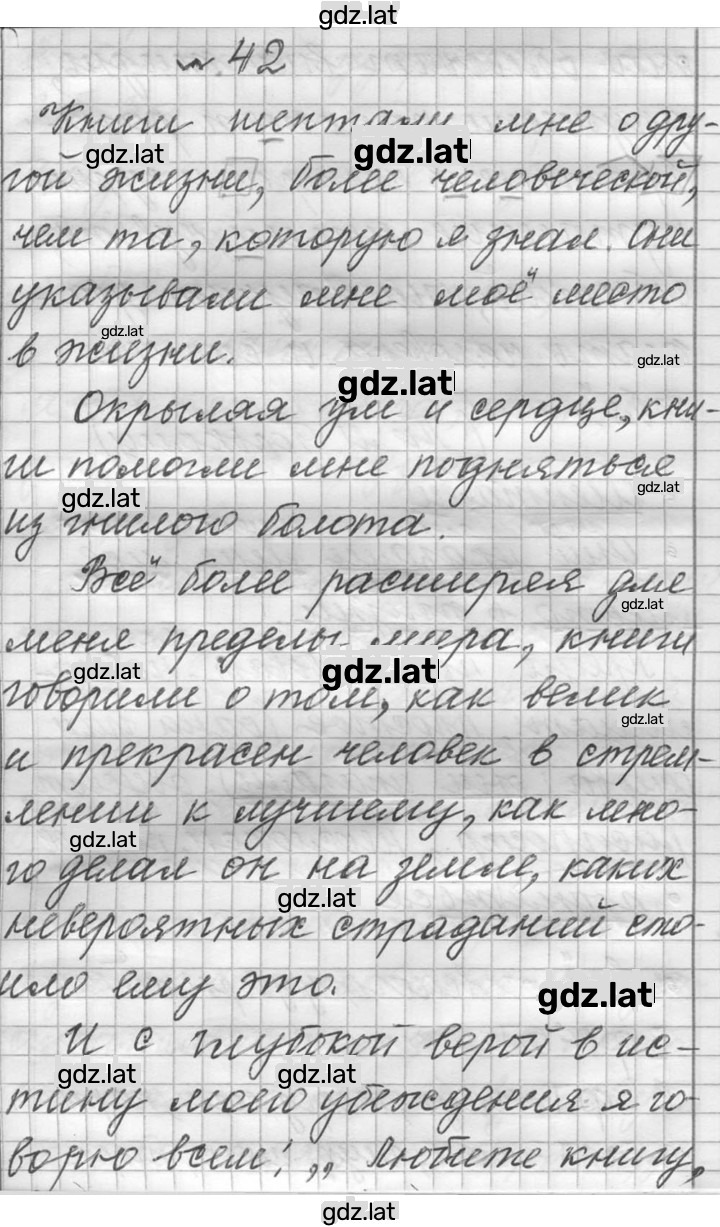 gdz.lat
№ 42
Книги шептали мне о дру-
gdz.lat gdz.lat
гой жизни, более человеческой,
чем та, которую я знал. Они
указывали мне моё место
gdz.lat
в жизни.
gdz.lat
gdz.lat
Окрыляя ум и сердце, кни-
ги помогли мне подняться
gdz.lat gdz.lat
из гнилого болота.
Всё более расширяя для
gdz.lat
меня пределы мира, книги
gdz.lat gdz.lat
говорили о том, как велик
gdz.lat
и прекрасен человек в стрем-
лении к лучшему, как мно-
gdz.lat
го делал он на земле, каких
gdz.lat
невероятных страданий сто-
ило ему это.
gdz.lat
И с глубокой верой в ис-
gdz.lat gdz.lat
тину моего убеждения я го-
ворю всем: „Любите книгу,
gdz.lat